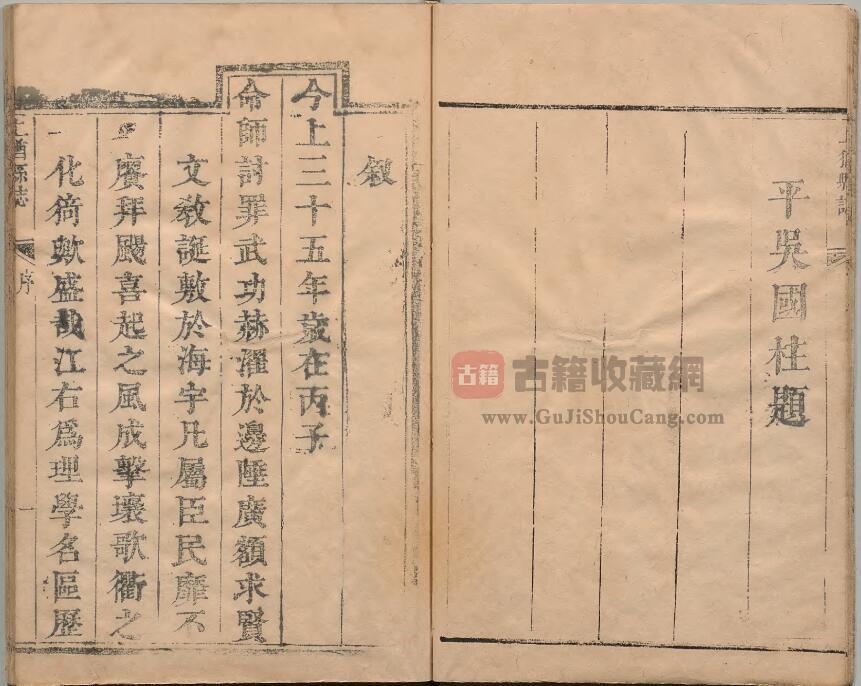 平吳國柱題
敘
今上三十五年歲在丙子
命師討罪武功赫濯於邊陲廣額求賢
文敎誕敷於海宇凡屬臣民靡不
賡拜颺喜起之風成擊壤歌衢之
化猗歟盛哉江右爲理學名區歷
上猶縣志
序
一
古籍
古籍收藏網
www.GuJiShouCang.com